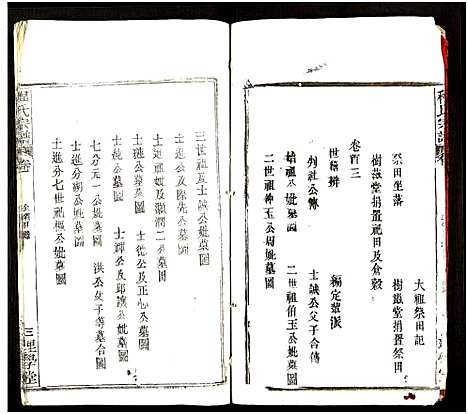 程氏宗譜
祭田坐落
大祖祭田記
樹滋堂捐置祀田及倉穀
樹滋堂捐置祭田
卷首三
世籍辨
編定輩派
列社公傳
士誠公父子合傳
始祖考公妣墓圖
二世祖伯玉公妣墓圖
二世祖仲玉公周妣墓圖
三世祖及士誠公妣墓圖
士進公及陳先公墓圖
士進祖妣及潮潤二公墓圖
士進公墓圖
士從公及正心公墓圖
七分元一公妣墓圖
士鐸公及邱讓公妣墓圖
士進分湖公妣墓圖
洪公及子等墓合圖
士進分七世祖楓公妣墓圖
程氏宗譜
卷
三理學堂